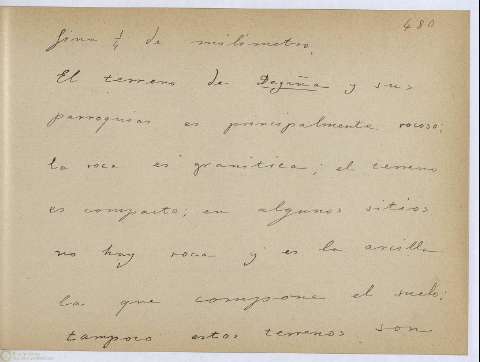 480
fina ¼ de milímetro.
El terreno de Dogiña y sus
parroquias es principalmente rocoso:
la roca es granitica; el terreno
es compacto; en algunos sitios
no hay roca y es la arcilla
la que compone el suelo:
tampoco estos terrenos son